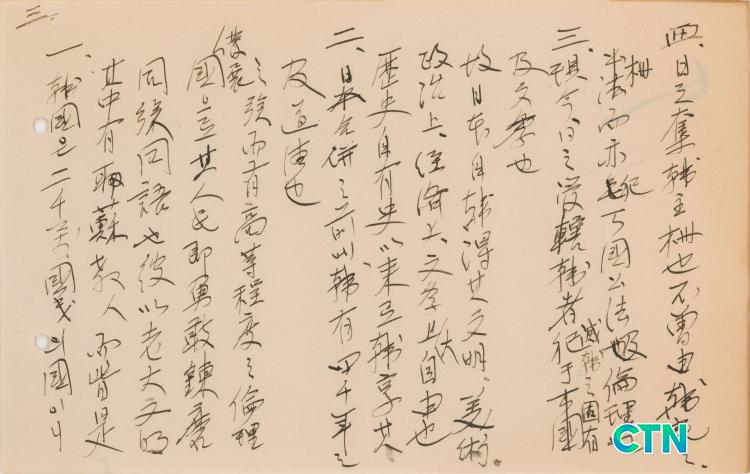 三
一、韓國은 二千萬國民의 國이니
其中有耶蘇敎人 而皆是
同族同語也 彼以老大文明
國으로 其人民即勇敢鍊磨
之族而有高等程度之倫理
及道德也
二、日本合併之前以韓有四千年之
歷史 自有史以來 韓享其
政治上、經濟上、文学上大自由也
故日本自韓得其文明、美術、
及文學也
三、現今日之受轄韓者犯于本國
滅韓之固有
法而亦犯万國公法 倫理也
四、日之奪韓主权也 不曾由韓民之
CTN